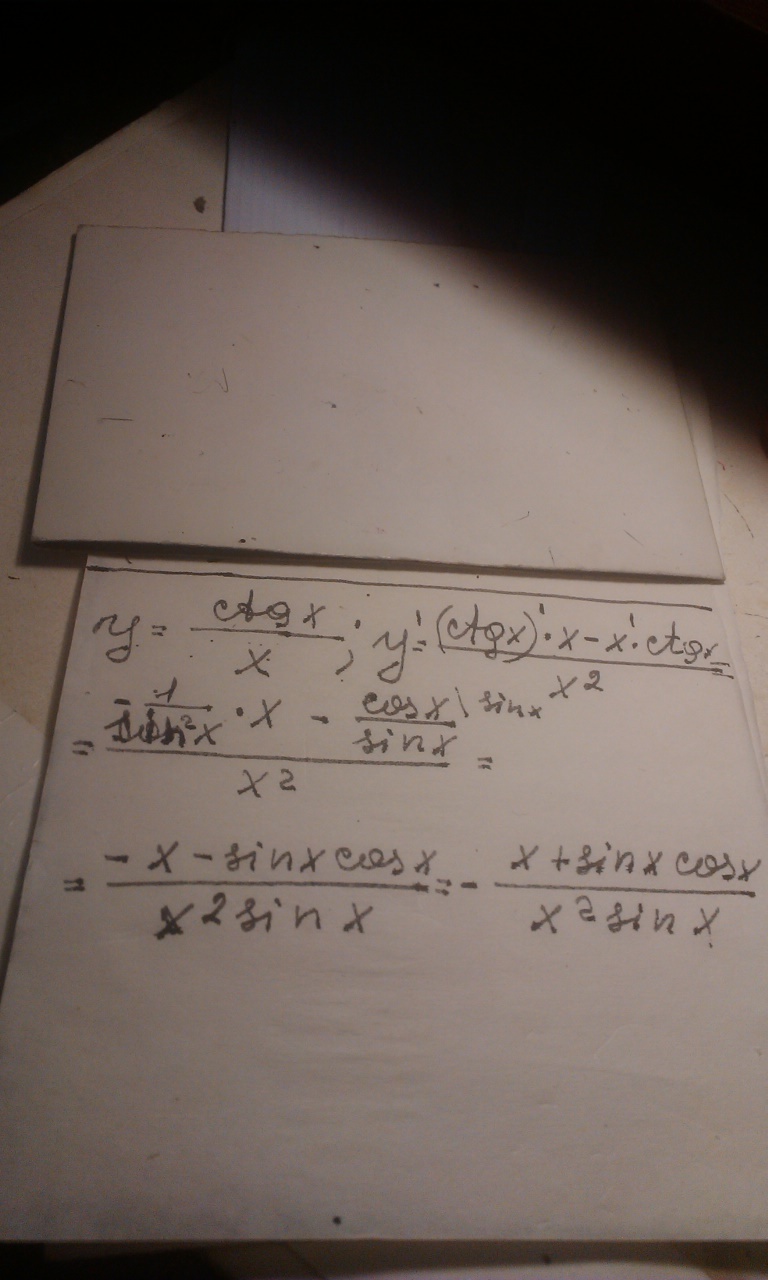 y = ctgx / x ; y' = ((ctgx)'·x - x'·ctgx) / x² =
= (-1/sin²x · x - cosx/sinx \ sinx) / x² =
= (-x - sinx cosx) / (x² sin x) = - (x + sinx cosx) / (x² sin x)